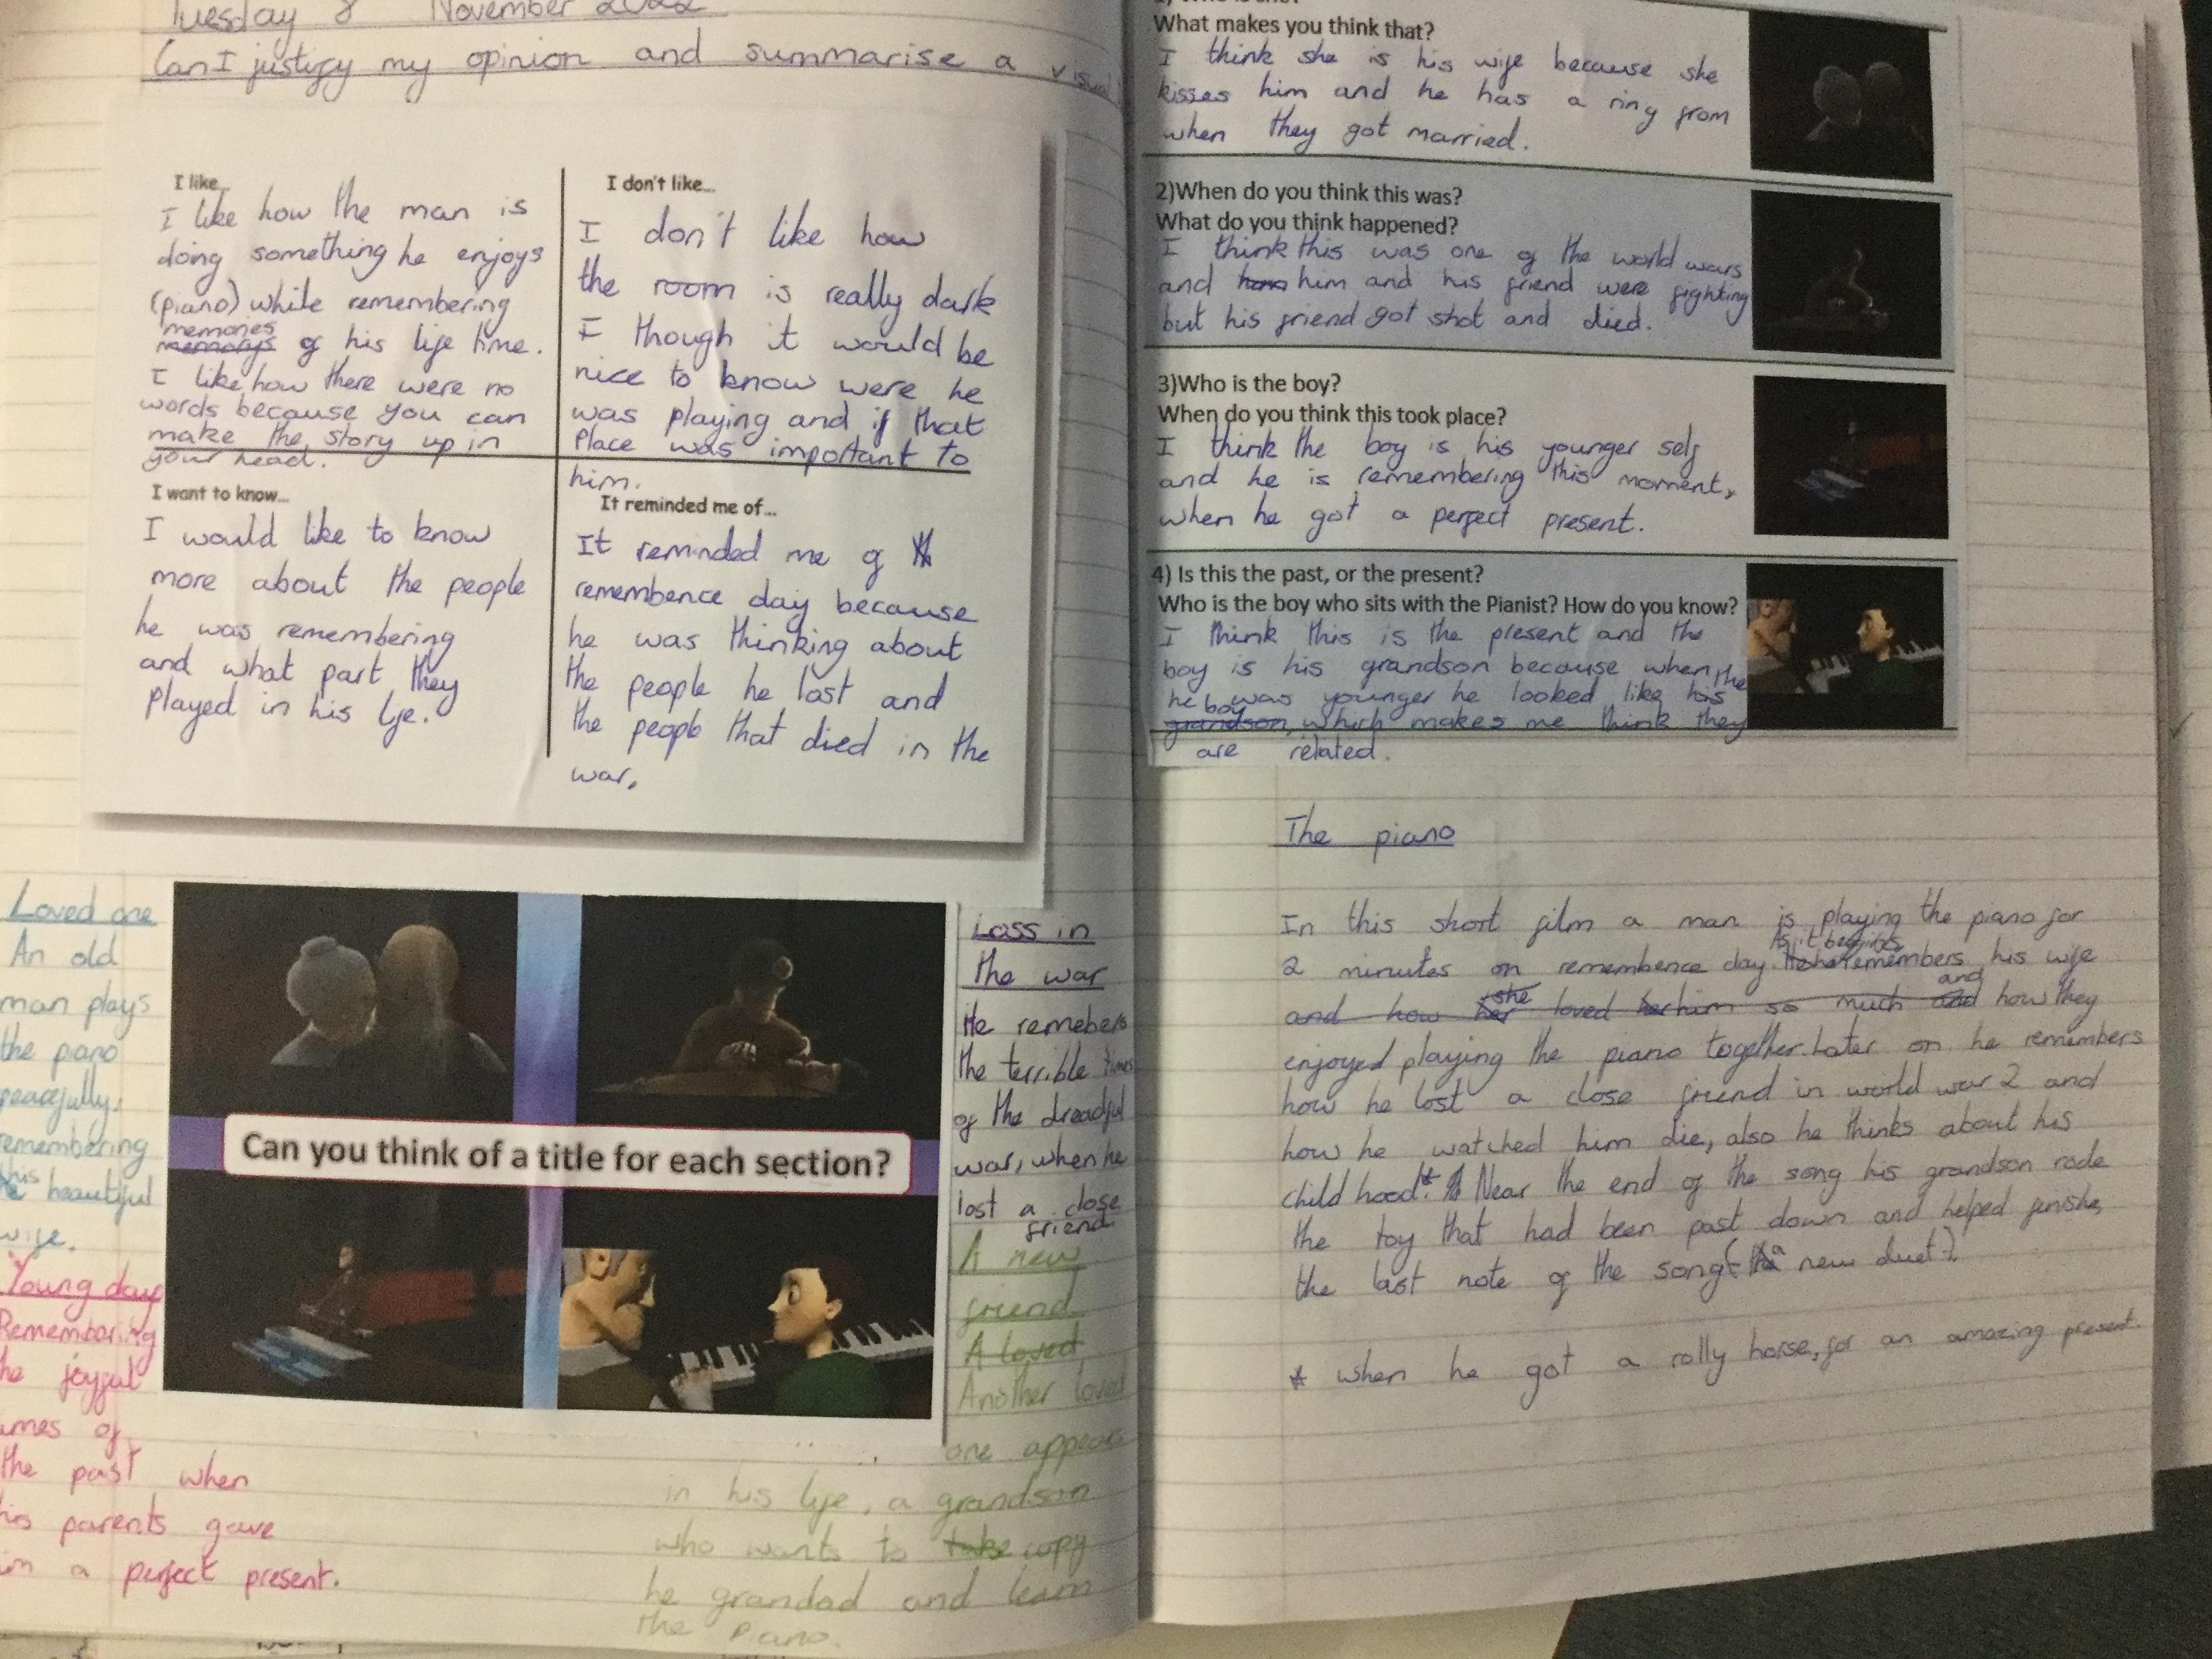 Tuesday 8 November 2022
Can I justify my opinion and summarise a visual
I like...
I like how the man is
doing something he enjoys
(piano) while remembering
memories
memorys of his life time.
I like how there were no
words because you can
make the story up in
your head.
I don't like...
I don't like how
the room is really dark
I though it would be
nice to know were he
was playing and if that
place was important to
him.
I want to know...
I would like to know
more about the people
he was remembering
and what part they
played in his life.
It reminded me of...
It reminded me of
remembence day because
he was thinking about
the people he lost and
the people that died in the
war.
Loved one
An old
man plays
the piano
peacefully,
remembering
his
beautiful
wife.
Young days
Remembering
the joyful
times of
the past when
his parents gave
him a perfect present.
Can you think of a title for each section?
Loss in
the war
He remebers
the terrible times
of the dreadful
war, when he
lost a close
friend
A new
friend
A loved
Another loved
one appears
in his life, a grandson
who wants to take copy
he grandad and learn
the piano.
What makes you think that?
I think she is his wife because she
kisses him and he has a ring from
when they got married.
2)When do you think this was?
What do you think happened?
I think this was one of the world wars
and him and his friend were fighting
but his friend got shot and died.
3)Who is the boy?
When do you think this took place?
I think the boy is his younger self
and he is remembering this moment,
when he got a perfect present.
4) Is this the past, or the present?
Who is the boy who sits with the Pianist? How do you know?
I think this is the present and the
boy is his grandson because when
he was younger he looked like his the
boy
grandson, which makes me think they
are related.
The piano
In this short film a man is playing the piano for
As it begins
2 minutes on remembence day. he remembers his wife
she and
and how her loved her him so much and how they
enjoyed playing the piano together. Later on he remembers
how he lost a close friend in world war 2 and
how he watched him die, also he thinks about his
child hood*. Near the end of the song his grandson rode
the toy that had been past down and helped finishe
the last note of the song (a new duet).
* when he got a rolly horse, for an amazing present.